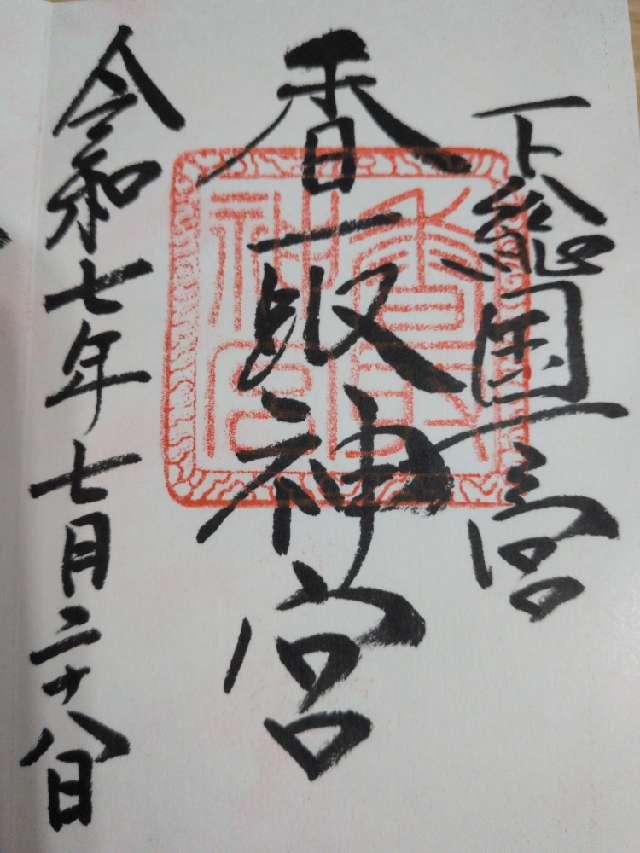 下総国一宮
香取神宮
香取神宮
令和七年七月二十八日